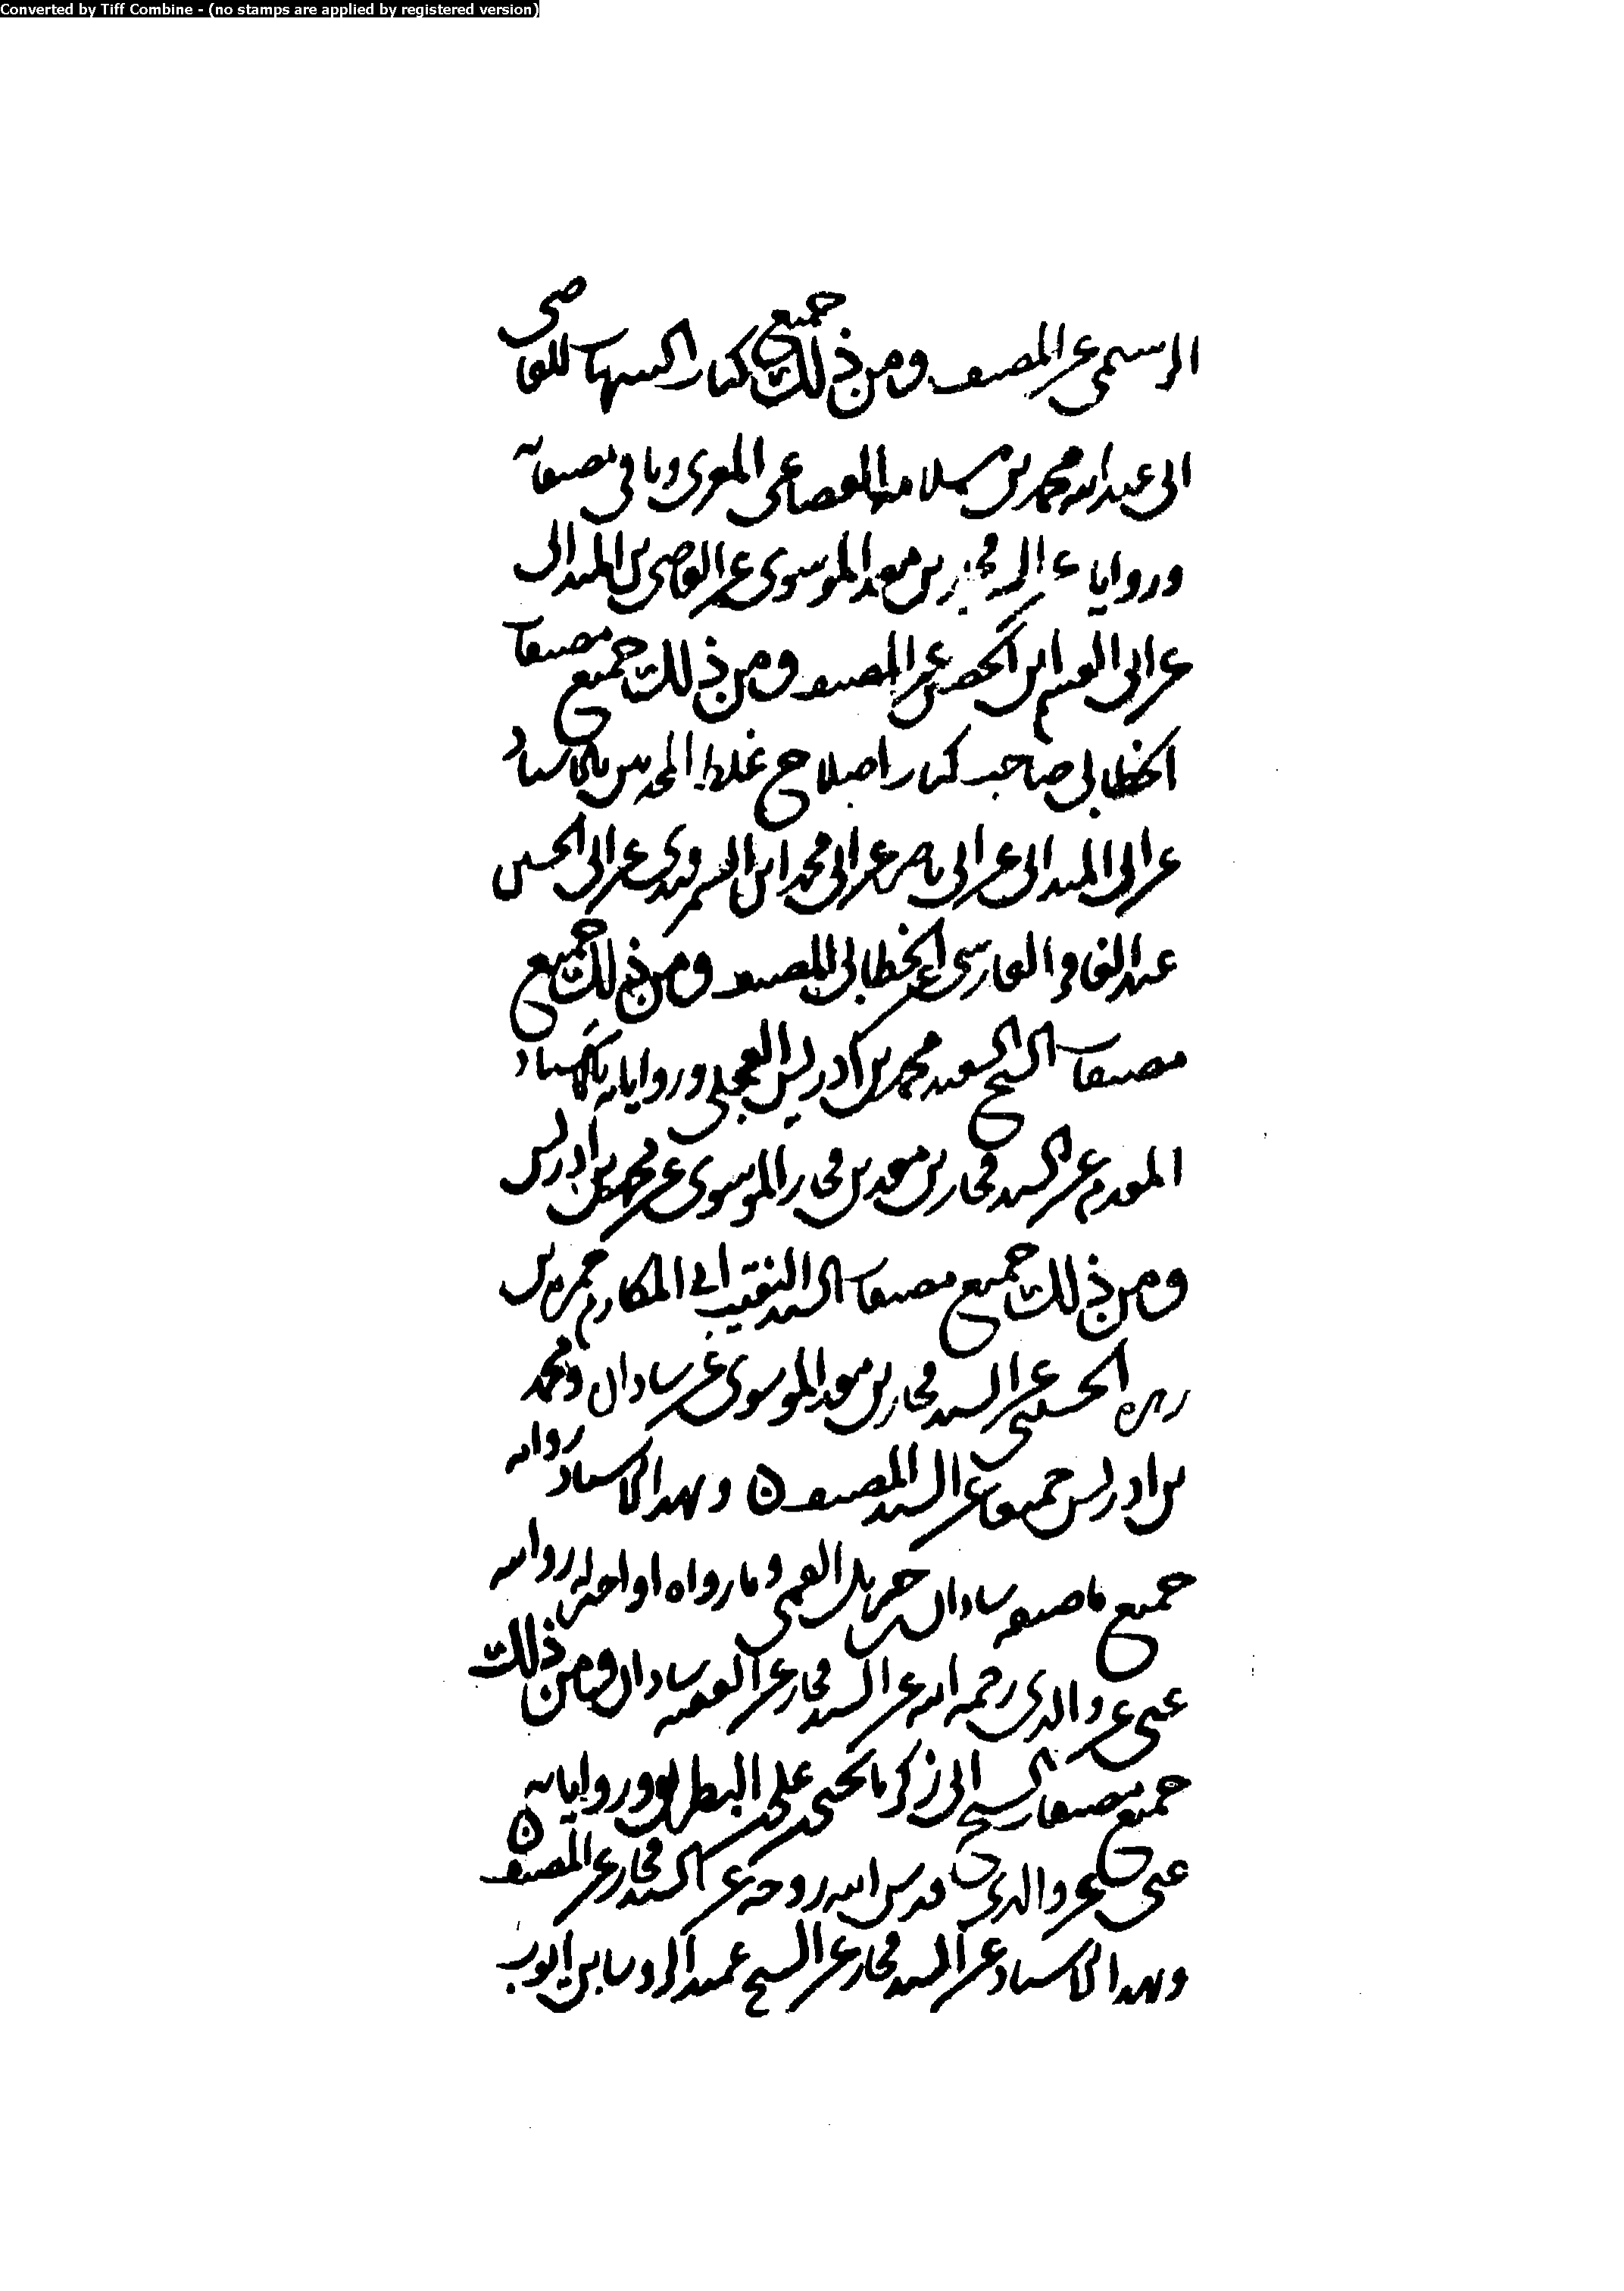 Converted by Tiff Combine - (no stamps are applied by registered version)
الرسمى عن المصنف ومن ذلك جميع كتاب الشهاب للقاضى
ابى عبد الله محمد بن سلامه القضاعى المغربى وباقى مصنفاته
ورواياته عن السيد فخار بن معد الموسوى عن القاضى بن الميدانى
عن ابى القسم ابن الحصين عن المصنف ومن ذلك جميع مصنفات
الخطابى صاحب كتاب اصلاح غلط المحدثين بالاسناد
عن ابن الميدانى عن ابن ناصر عن ابى محمد ابن السمرقندى عن ابى الحسين
عبد الغافر الفارسى عن الخطابى المصنف ومن ذلك جميع
مصنفات الشيخ السعيد محمد بن ادريس العجلى ورواياته بالاسناد
المقدم عن السيد فخار بن معد بن فخار الموسوى عن محمد بن ادريس
ومن ذلك جميع مصنفات السيد النقيب ابى المكارم حمزه بن
زهره الحسينى عن السيد فخار بن معد الموسوى عن شاذان ومحمد
بن ادريس جميعا عن السيد المصنف ٥ وبهذا الاسناد روايه
جميع ما صنفه شاذان بن جبريل القمى وما رواه او اجيز له روايته
عنى عن والدى رحمه الله عن السيد فخار عن الفقيه شاذان ومن ذلك
جميع مصنفات الشيخ ابى زكريا يحيى بن على البطريق ورواياته
عنى عن والدى قدس الله روحه عن السيد فخار عن المصنف ٥
وبهذا الاسناد عن السيد فخار عن الشيخ عميد الروسا بن ايوب